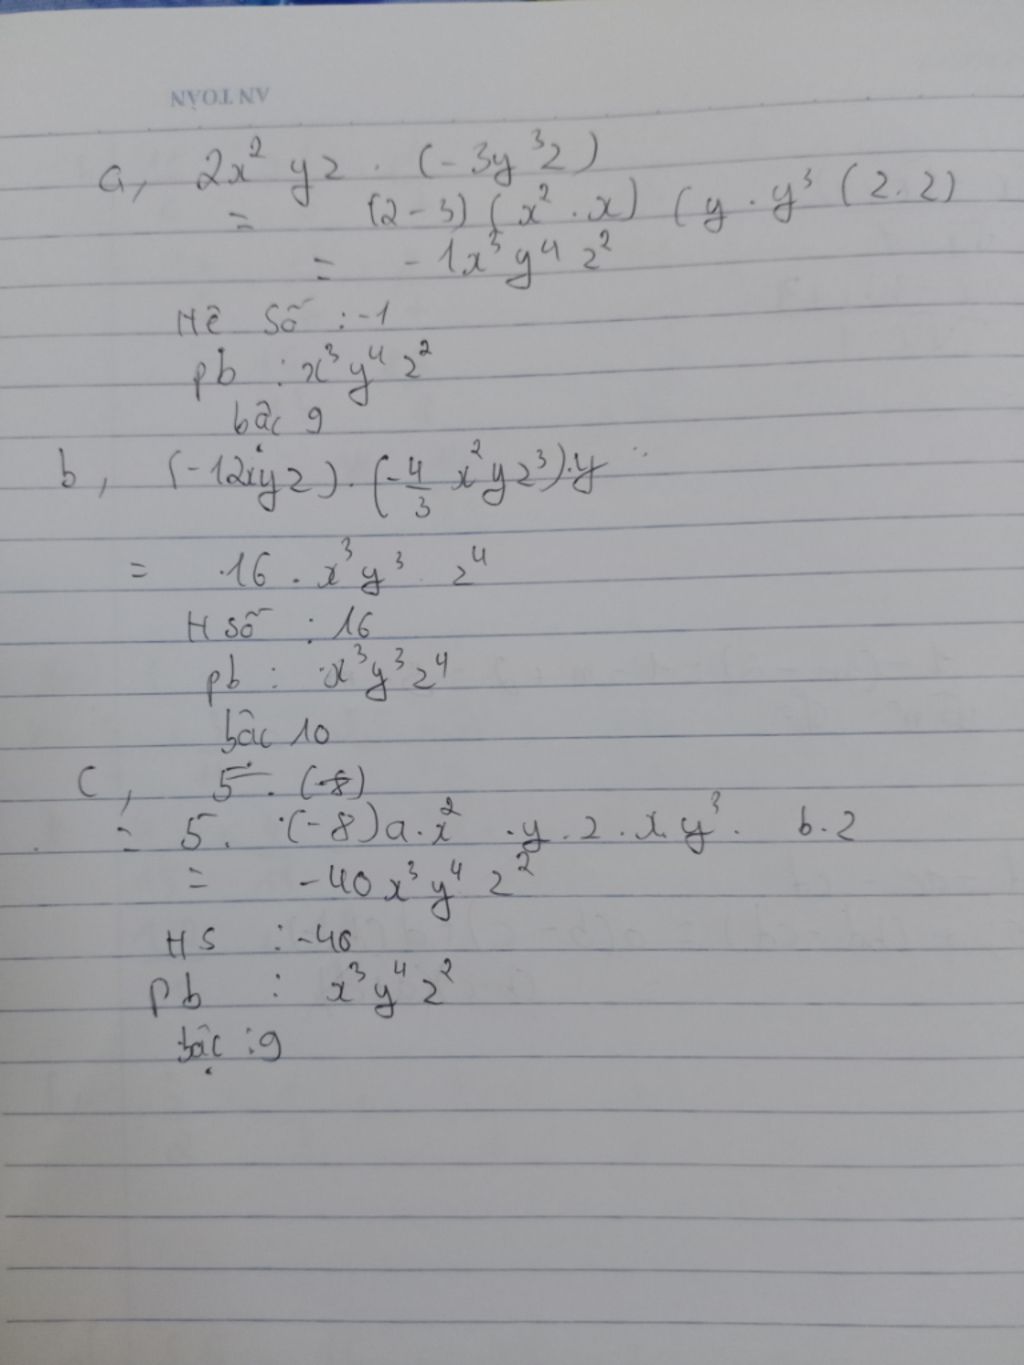 AN TOÀN
a, 2x² yz . (-3y³z)
= (2-3) (x² . x) (y . y³ (z . z)
= -1x³ y⁴ z²
Hê Số : -1
pb : x³ y⁴ z²
bậc 9
b, (-12xyz) . (-4/3 x² y z³) . y
= .16 . x³ y³ z⁴
H số : 16
pb : x³ y³ z⁴
bâc 10
C, 5 . (-8)
= 5 . (-8) a . x² . y . z . x . y³ . b . z
= -40 x³ y⁴ z²
HS : -40
Pb : x³ y⁴ z²
bậc : 9